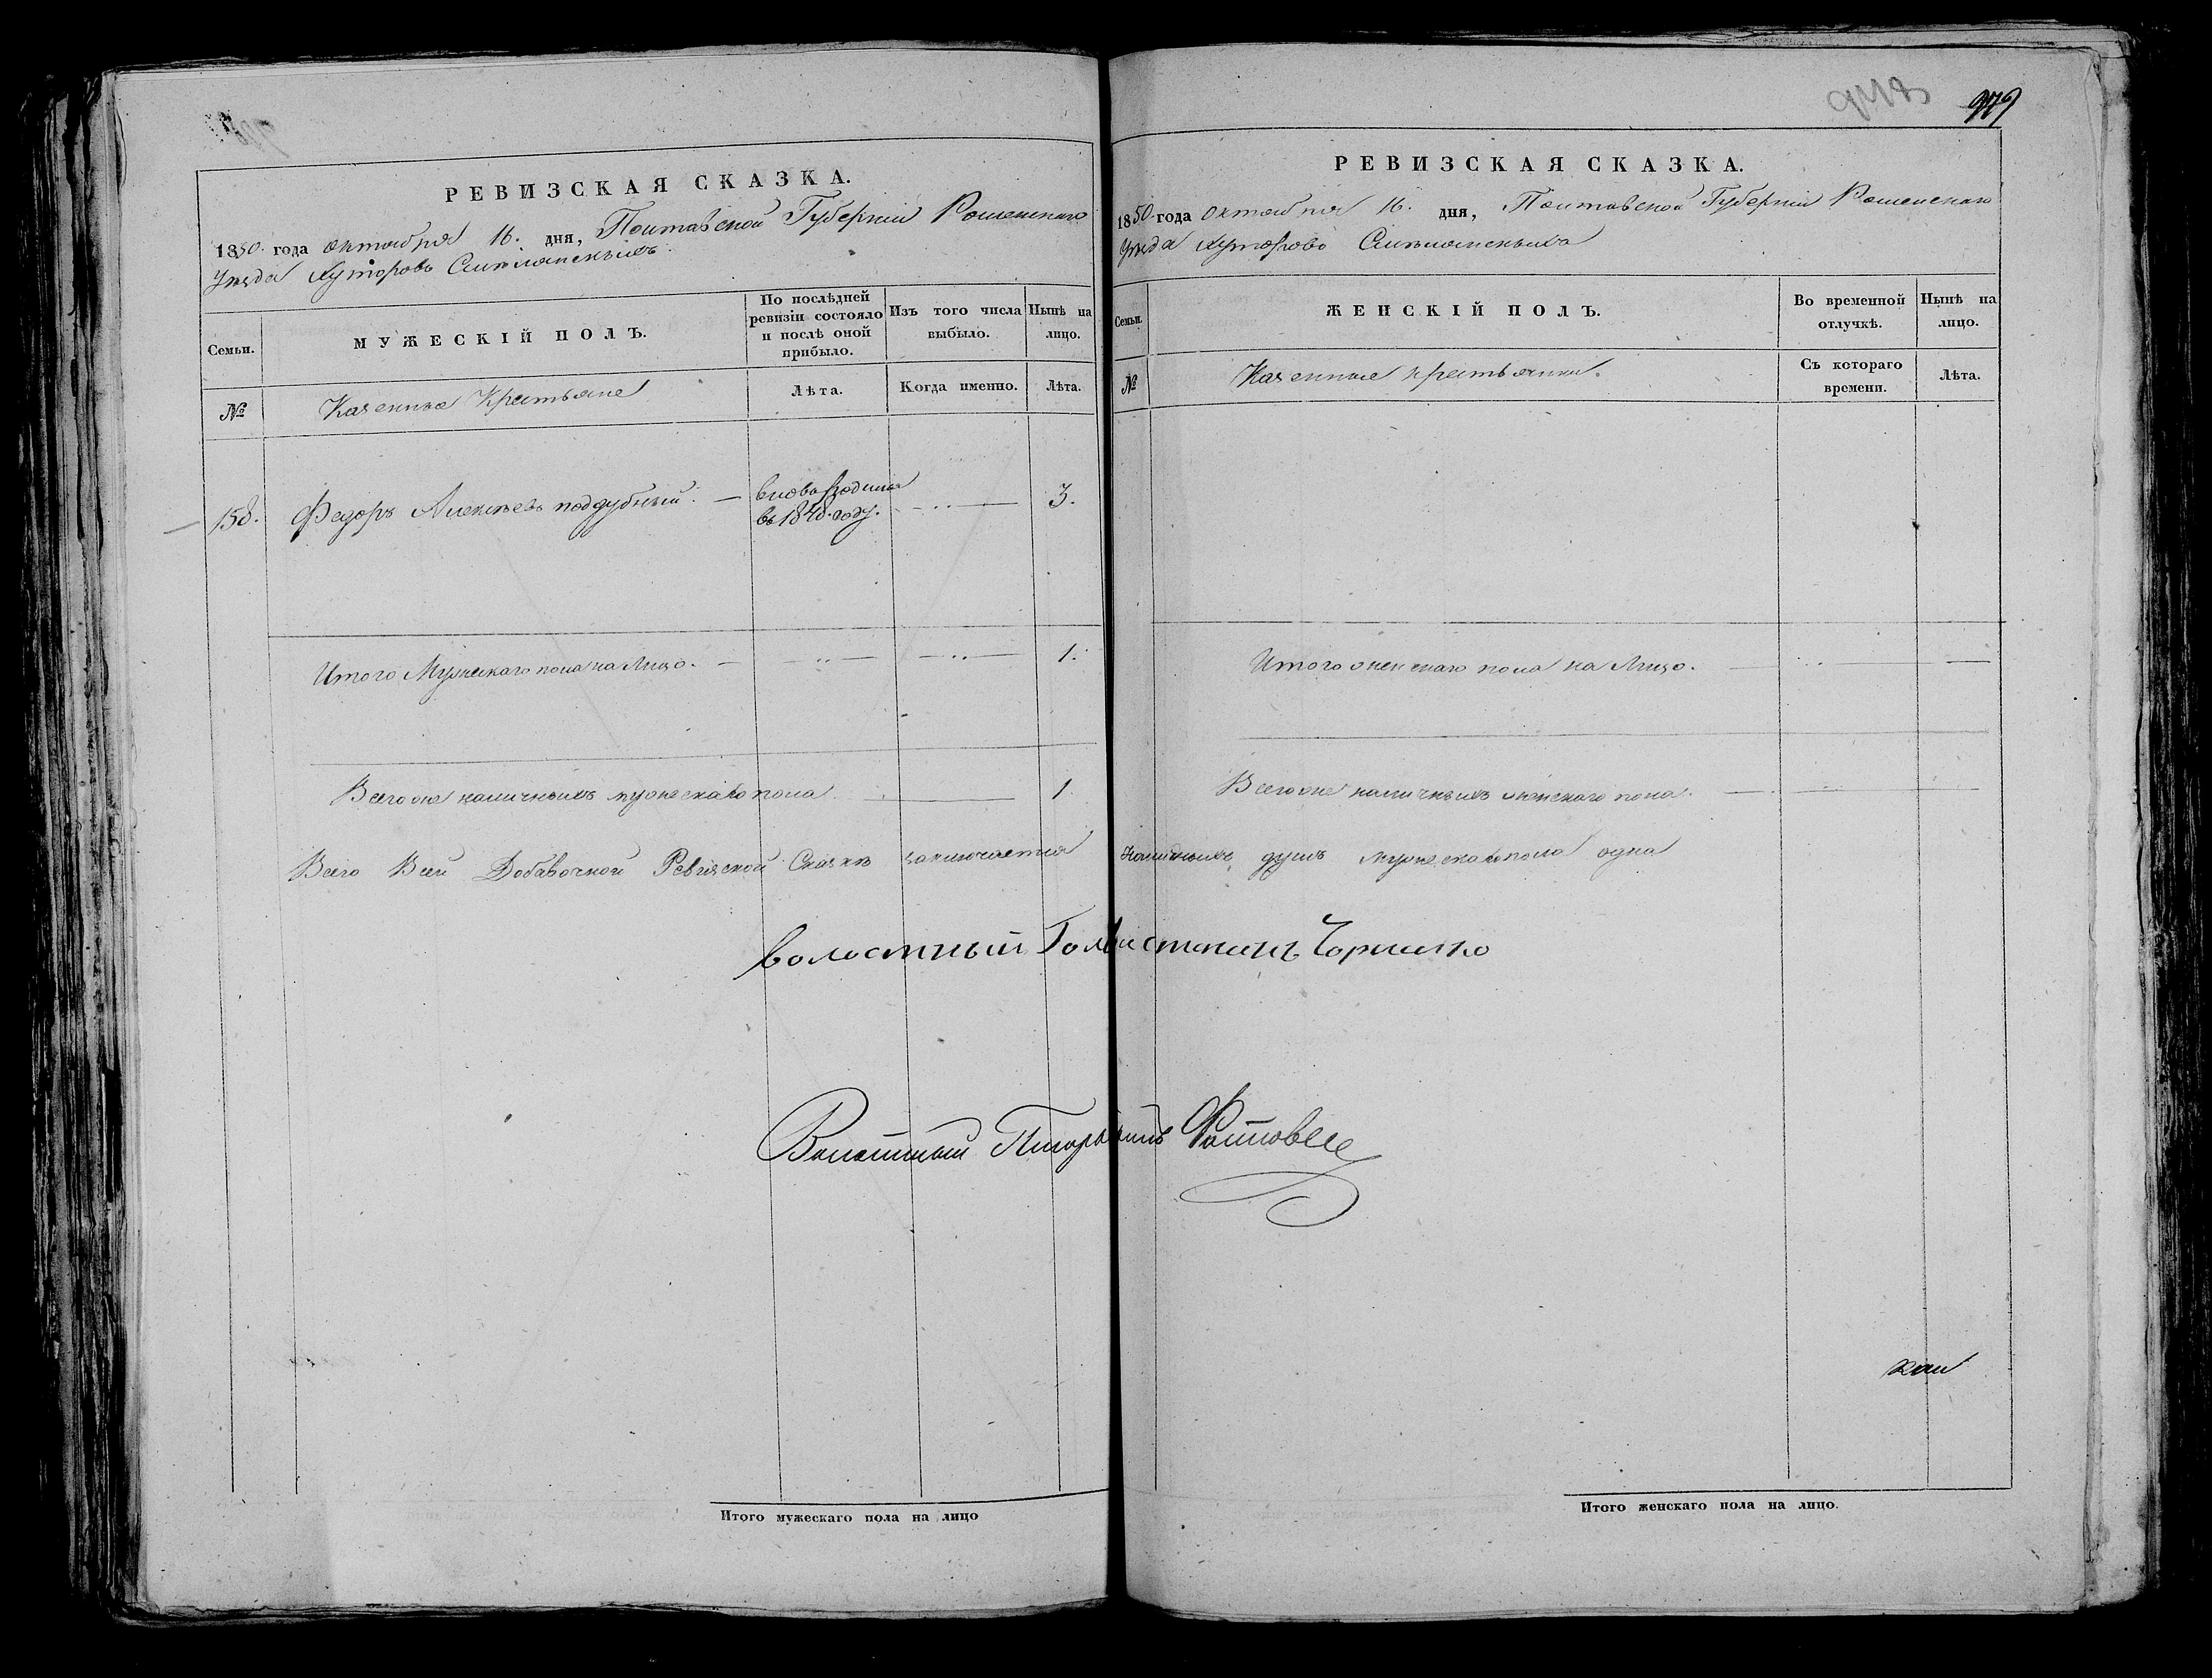 РЕВИЗСКАЯ СКАЗКА.
1850. года октября 16. дня, Полтавской Губерніи Роменскаго
Уезда Хуторовъ
Семьи.
МУЖЕСКІЙ ПОЛЪ.
По послѣдней ревизіи состояло и послѣ оной прибыло.
Изъ того числа выбыло.
Нынѣ на лицо.
№
Казенные Крестьяне
Лѣта.
Когда именно.
Лѣта.
158. Федоръ Алексѣевъ поддубный. — вновь родился — 3.
въ 1848. году.
Итого Мужескаго пола на Лицо. — 1.
Всего же наличныхъ мужескаго пола — 1
Всего Всей Добавочной Ревизской Сказкѣ заключается
волостный Голова
Волостный Писарь
Итого мужескаго пола на лицо
979
РЕВИЗСКАЯ СКАЗКА.
1850. года октября 16. дня, Полтавской Губерніи Роменскаго
Уезда хуторовъ
Семьи.
ЖЕНСКІЙ ПОЛЪ.
Во временной отлучкѣ.
Нынѣ на лицо.
№
Казенные крестьянки.
Съ котораго времени.
Лѣта.
Итого женскаго пола на Лицо. —
Всего же наличныхъ женскаго пола. —
Наличныхъ душъ мужескаго пола одна
Итого женскаго пола на лицо.